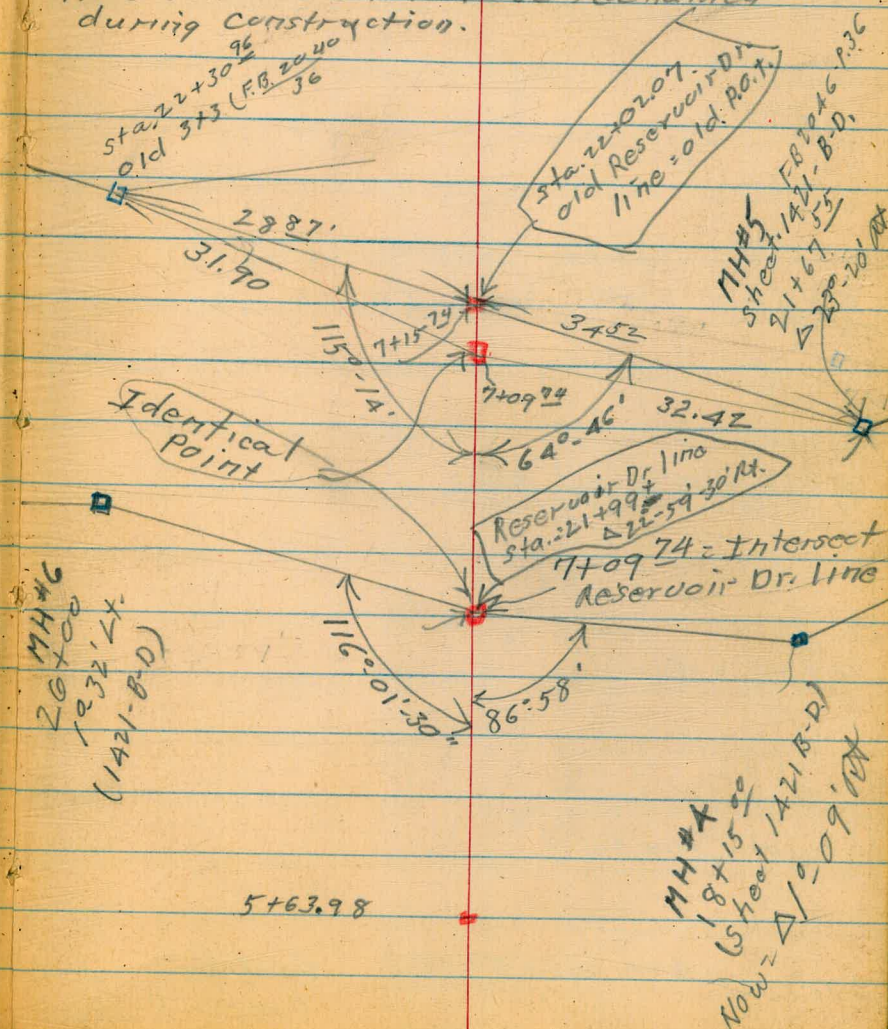 during construction.
sta. 22+30 96
old 3+3 (F.B. 2040
36
sta. 22+02.07
old Reservoir Dr.
line = old P.O.T.
MH#5 FB 2046-P.36
sheet. 1421-B-D.
21+67 55
Δ 23°-20' Rt
28 87'
31.90
34 52
7+15 74
115°-14'
7+09 74
32.42
64°-46'
Identical
point
Reservoir Dr. line
sta.: 21+99
Δ 22°-59'-30" Rt.
7+09 74 = Intersect
Reservoir Dr. line
MH#6
26+00
1°32' Lt.
(1421-B-D)
116°-01'-30"
86°-58'
MH#4
18+15 00
(sheet 1421 B-D.)
Now = Δ1°-09' Rt
5+63.98